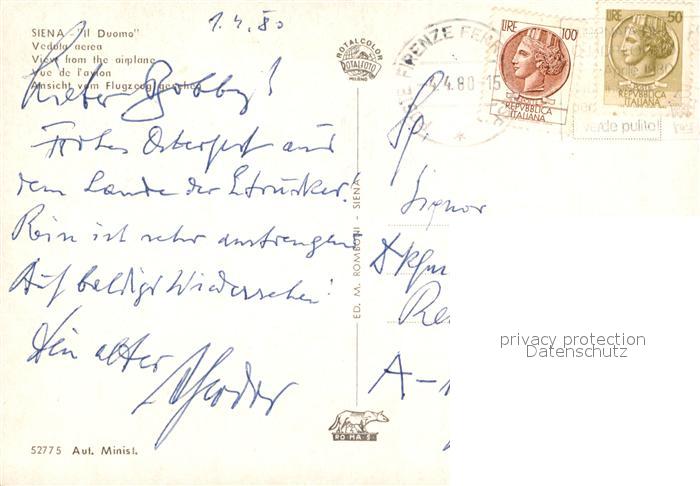 1.4.80
SIENA - "Il Duomo"
Vedula aerea
View from the airplane
Vue de l'avion
Ansicht vom Flugzeug gesehen
Lieber Bobby!
Frohes Osterfest aus
dem Lande der Etrusker!
ist sehr anstrengend
Auf baldiges Wiedersehen!
Dein alter
Theodor
52775 Aut. Minist.
ROTALCOLOR
ROTALFOTO
MILANO
ED. M. ROMBONI - SIENA
ROMA S
FIRENZE FERR
4.80-15
LIRE 100
POSTE
REPVBBLICA
ITALIANA
LIRE 50
POSTE
REPVBBLICA
ITALIANA
verde pulito!
Signor
Dkfm
A-
privacy protection
Datenschutz